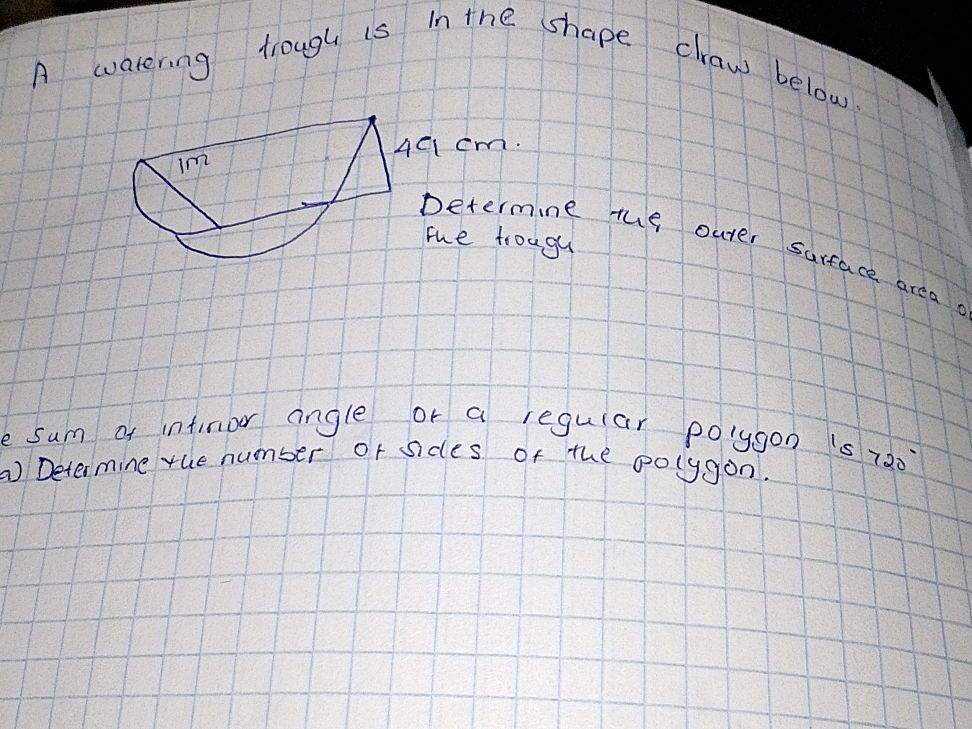 A watering trough is in the shape draw below.
1m
49 cm.
Determine the outer surface area of
the trough
e sum of intirior angle of a regular polygon is 720°
a) Determine the number of sides of the polygon.